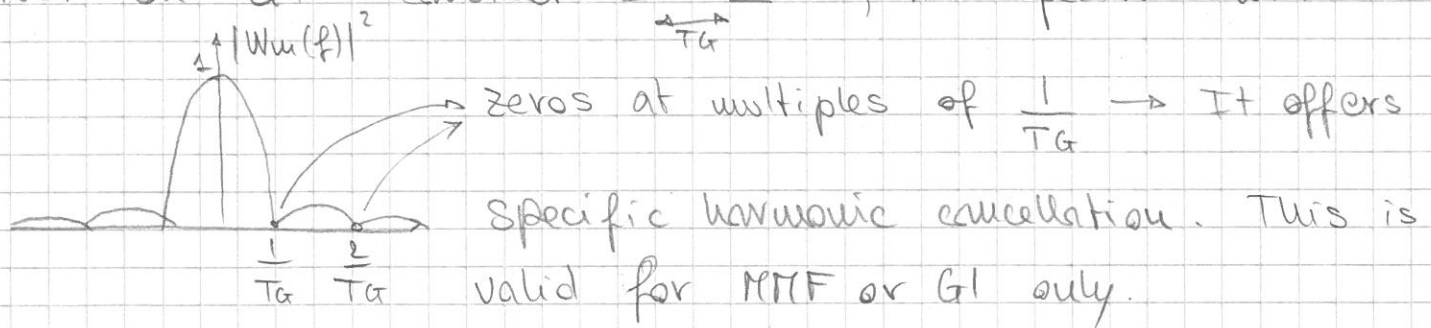 TG
1 |Wm(f)|²
zeros at multiples of 1/TG → It offers
specific harmonic cancellation. This is
1/TG 2/TG valid for MMF or GI only.